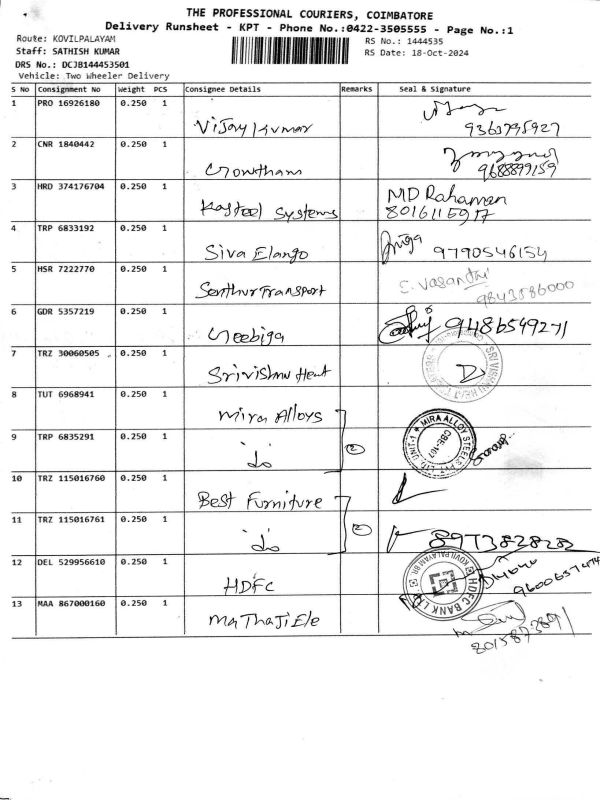 THE PROFESSIONAL COURIERS, COIMBATORE
Delivery Runsheet - KPT - Phone No.:0422-3505555 - Page No.:1
Route: KOVILPALAYAM
RS No.: 1444535
Staff: SATHISH KUMAR
RS Date: 18-Oct-2024
DRS No.: DCJB144453501
Vehicle: Two Wheeler Delivery
S No Consignment No Weight PCS Consignee Details Remarks Seal & Signature
1 PRO 16926180 0.250 1 Vijay Kumar 9363795927
2 CNR 1840442 0.250 1 Gowtham 9688899159
3 HRD 374176704 0.250 1 Kasteel Systems MD Rahaman
8016115917
4 TRP 6833192 0.250 1 Siva Elango 9790546154
5 HSR 7222770 0.250 1 Senthur Transport E. Vasanthi
9843586000
6 GDR 5357219 0.250 1 Geebiga 9486549271
7 TRZ 30060505 0.250 1 Srivishnu Heat
8 TUT 6968941 0.250 1 Mira Alloys
MIRA ALLOY STEELS PVT LTD. UNIT-1
CBE-107
9 TRP 6835291 0.250 1 do 2
10 TRZ 115016760 0.250 1 Best Furniture
11 TRZ 115016761 0.250 1 do 2 8973828282
12 DEL 529956610 0.250 1 HDFC
HDFC BANK LTD. KOVILPALAYAM BR.
9600657474
13 MAA 867000160 0.250 1 MaThaJi Ele
8015873891